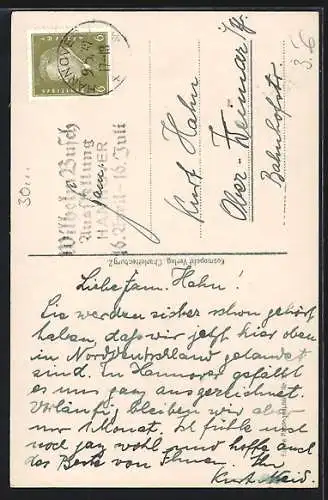 HANNOVER
6
Wilhelm Busch
Ausstellung
HANNOVER
16. Juli
Familie
Kurt Hahn
Ober-Weimar i/Th.
Bahnhofstr.
Kosmopolit Verlag, Charlottenburg 2
30
3.
Liebe Fam. Hahn!
Sie werden sicher schon gehört
haben, dass wir jetzt hier oben
in Nordwestdeutschland gelandet
sind. In Hannover gefällt
es uns ganz ausgezeichnet.
Vorläufig bleiben wir aber
nur 1 Monat. Ich fühle mich
noch ganz wohl und hoffe auch
das Beste von Ihnen. Ihr
Kurt